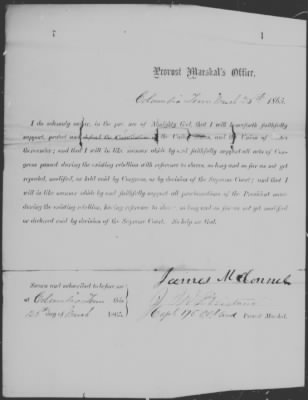 Provost Marshal's Office,
Columbia Tenn March 25th 1865.
I do solemnly swear, in the presence of Almighty God, that I will henceforth faithfully
support, protect and defend the Constitution of the United States, and the Union of States
thereunder; and that I will in like manner abide by and faithfully support all acts of Con-
gress passed during the existing rebellion with reference to slaves, so long and so far as not yet
repealed, modified, or held void by Congress, or by decision of the Supreme Court; and that I
will in like manner abide by and faithfully support all proclamations of the President made
during the existing rebellion, having reference to slaves so long and so far as not yet modified
or declared void by decision of the Supreme Court. So help me God.
Sworn and subscribed to before me
at Columbia Tenn this
25th Day of March 1865.
James McConnel
Capt Provost Marshal.